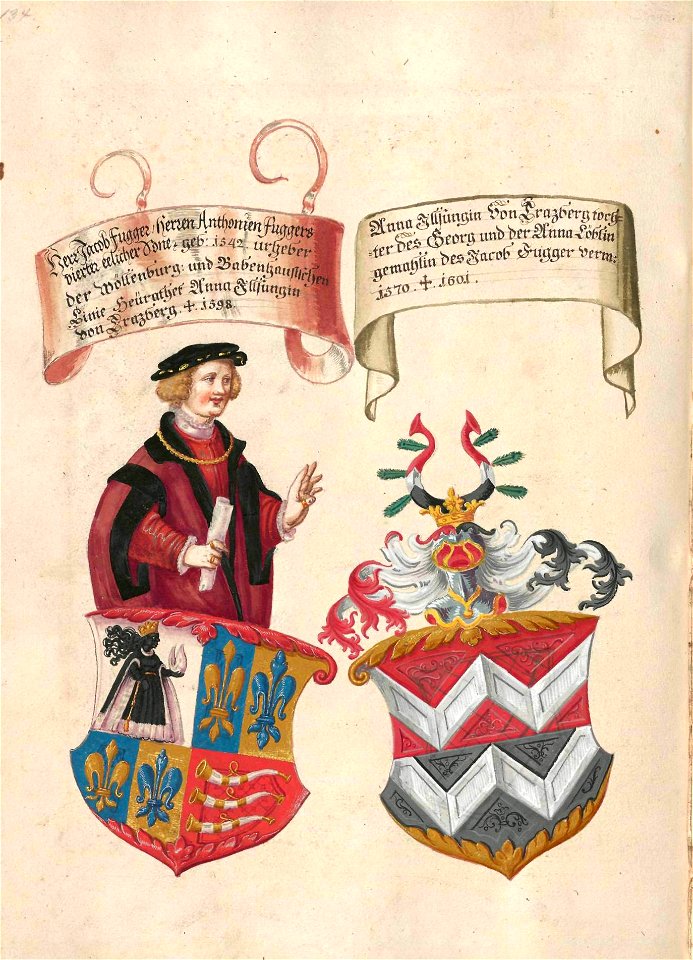 134
Herr Jacob Fugger, Herren Anthonien Fuggers
vierter eelicher Sone, geb: 1542 urheber
der Wöllenburg: und Babenhausischen
Linie Heürathet Anna Illsüngin
von Trazberg. + 1598.
Anna Illsüngin Von Trazberg toch-
ter des Georg und der Anna Löblin
gemahlin des Jacob Fugger verm:
1570. + 1601.